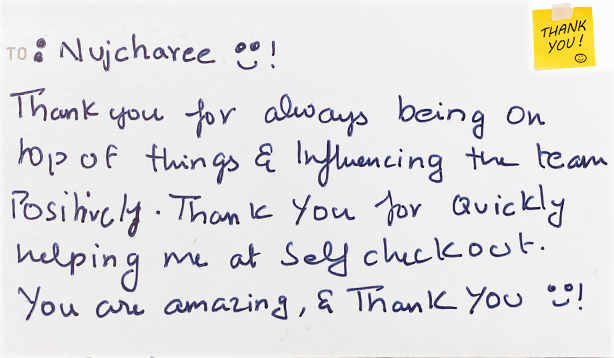 THANK
YOU!
TO: Nujcharee !
Thank you for always being on
top of things & Influencing the team
Positively. Thank you for Quickly
helping me at Self checkout.
You are amazing, & Thank You !